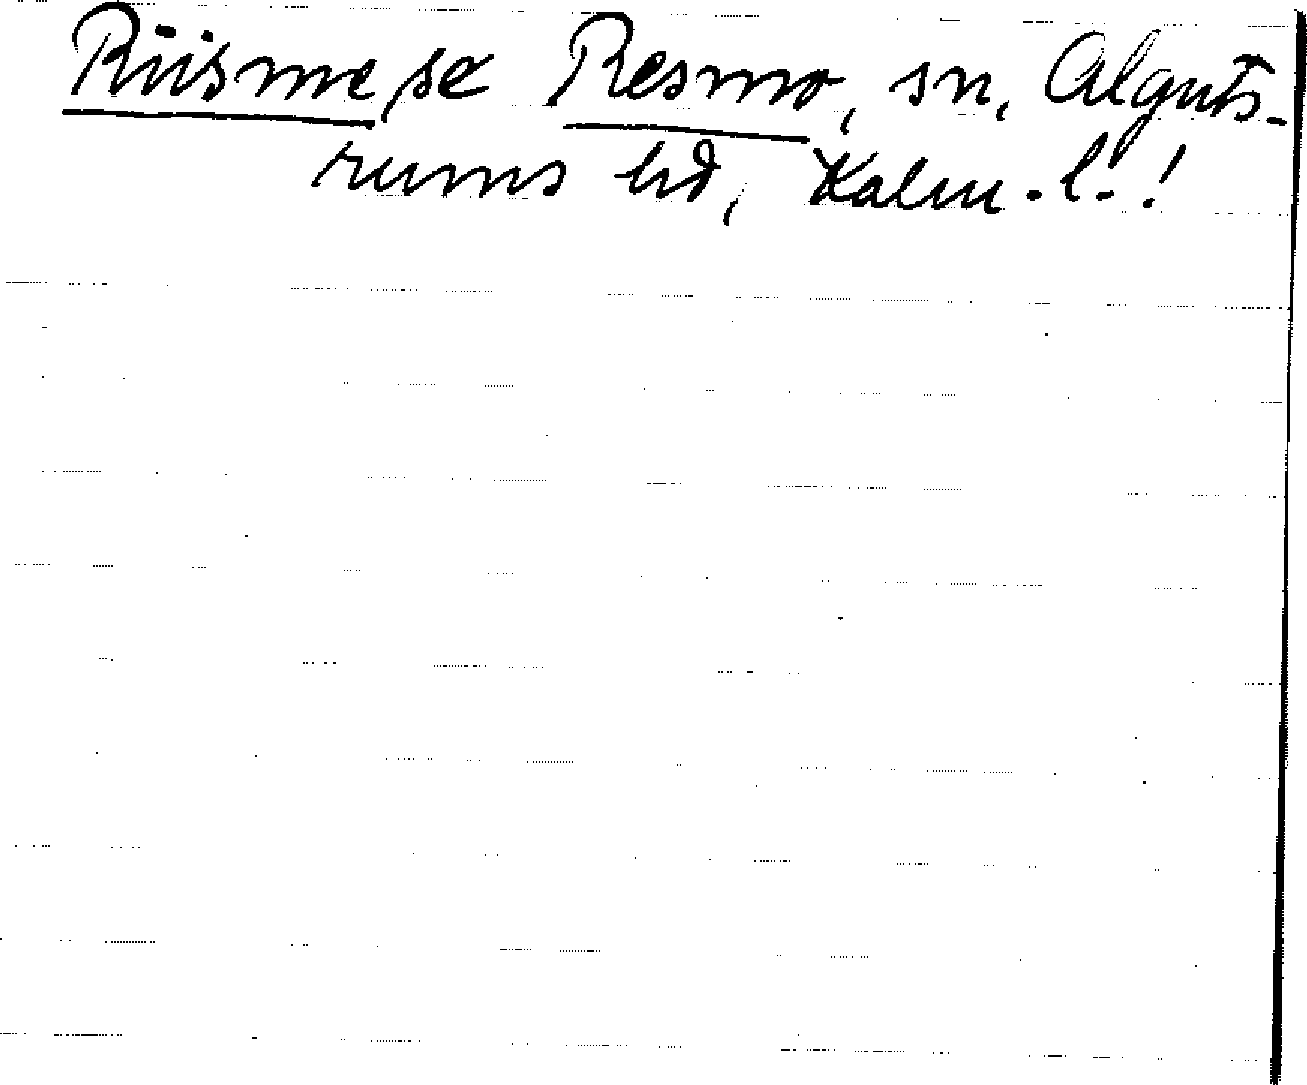 Riisme, se Resmo, sn, Alguts-
rums hd, Kalm. l.!